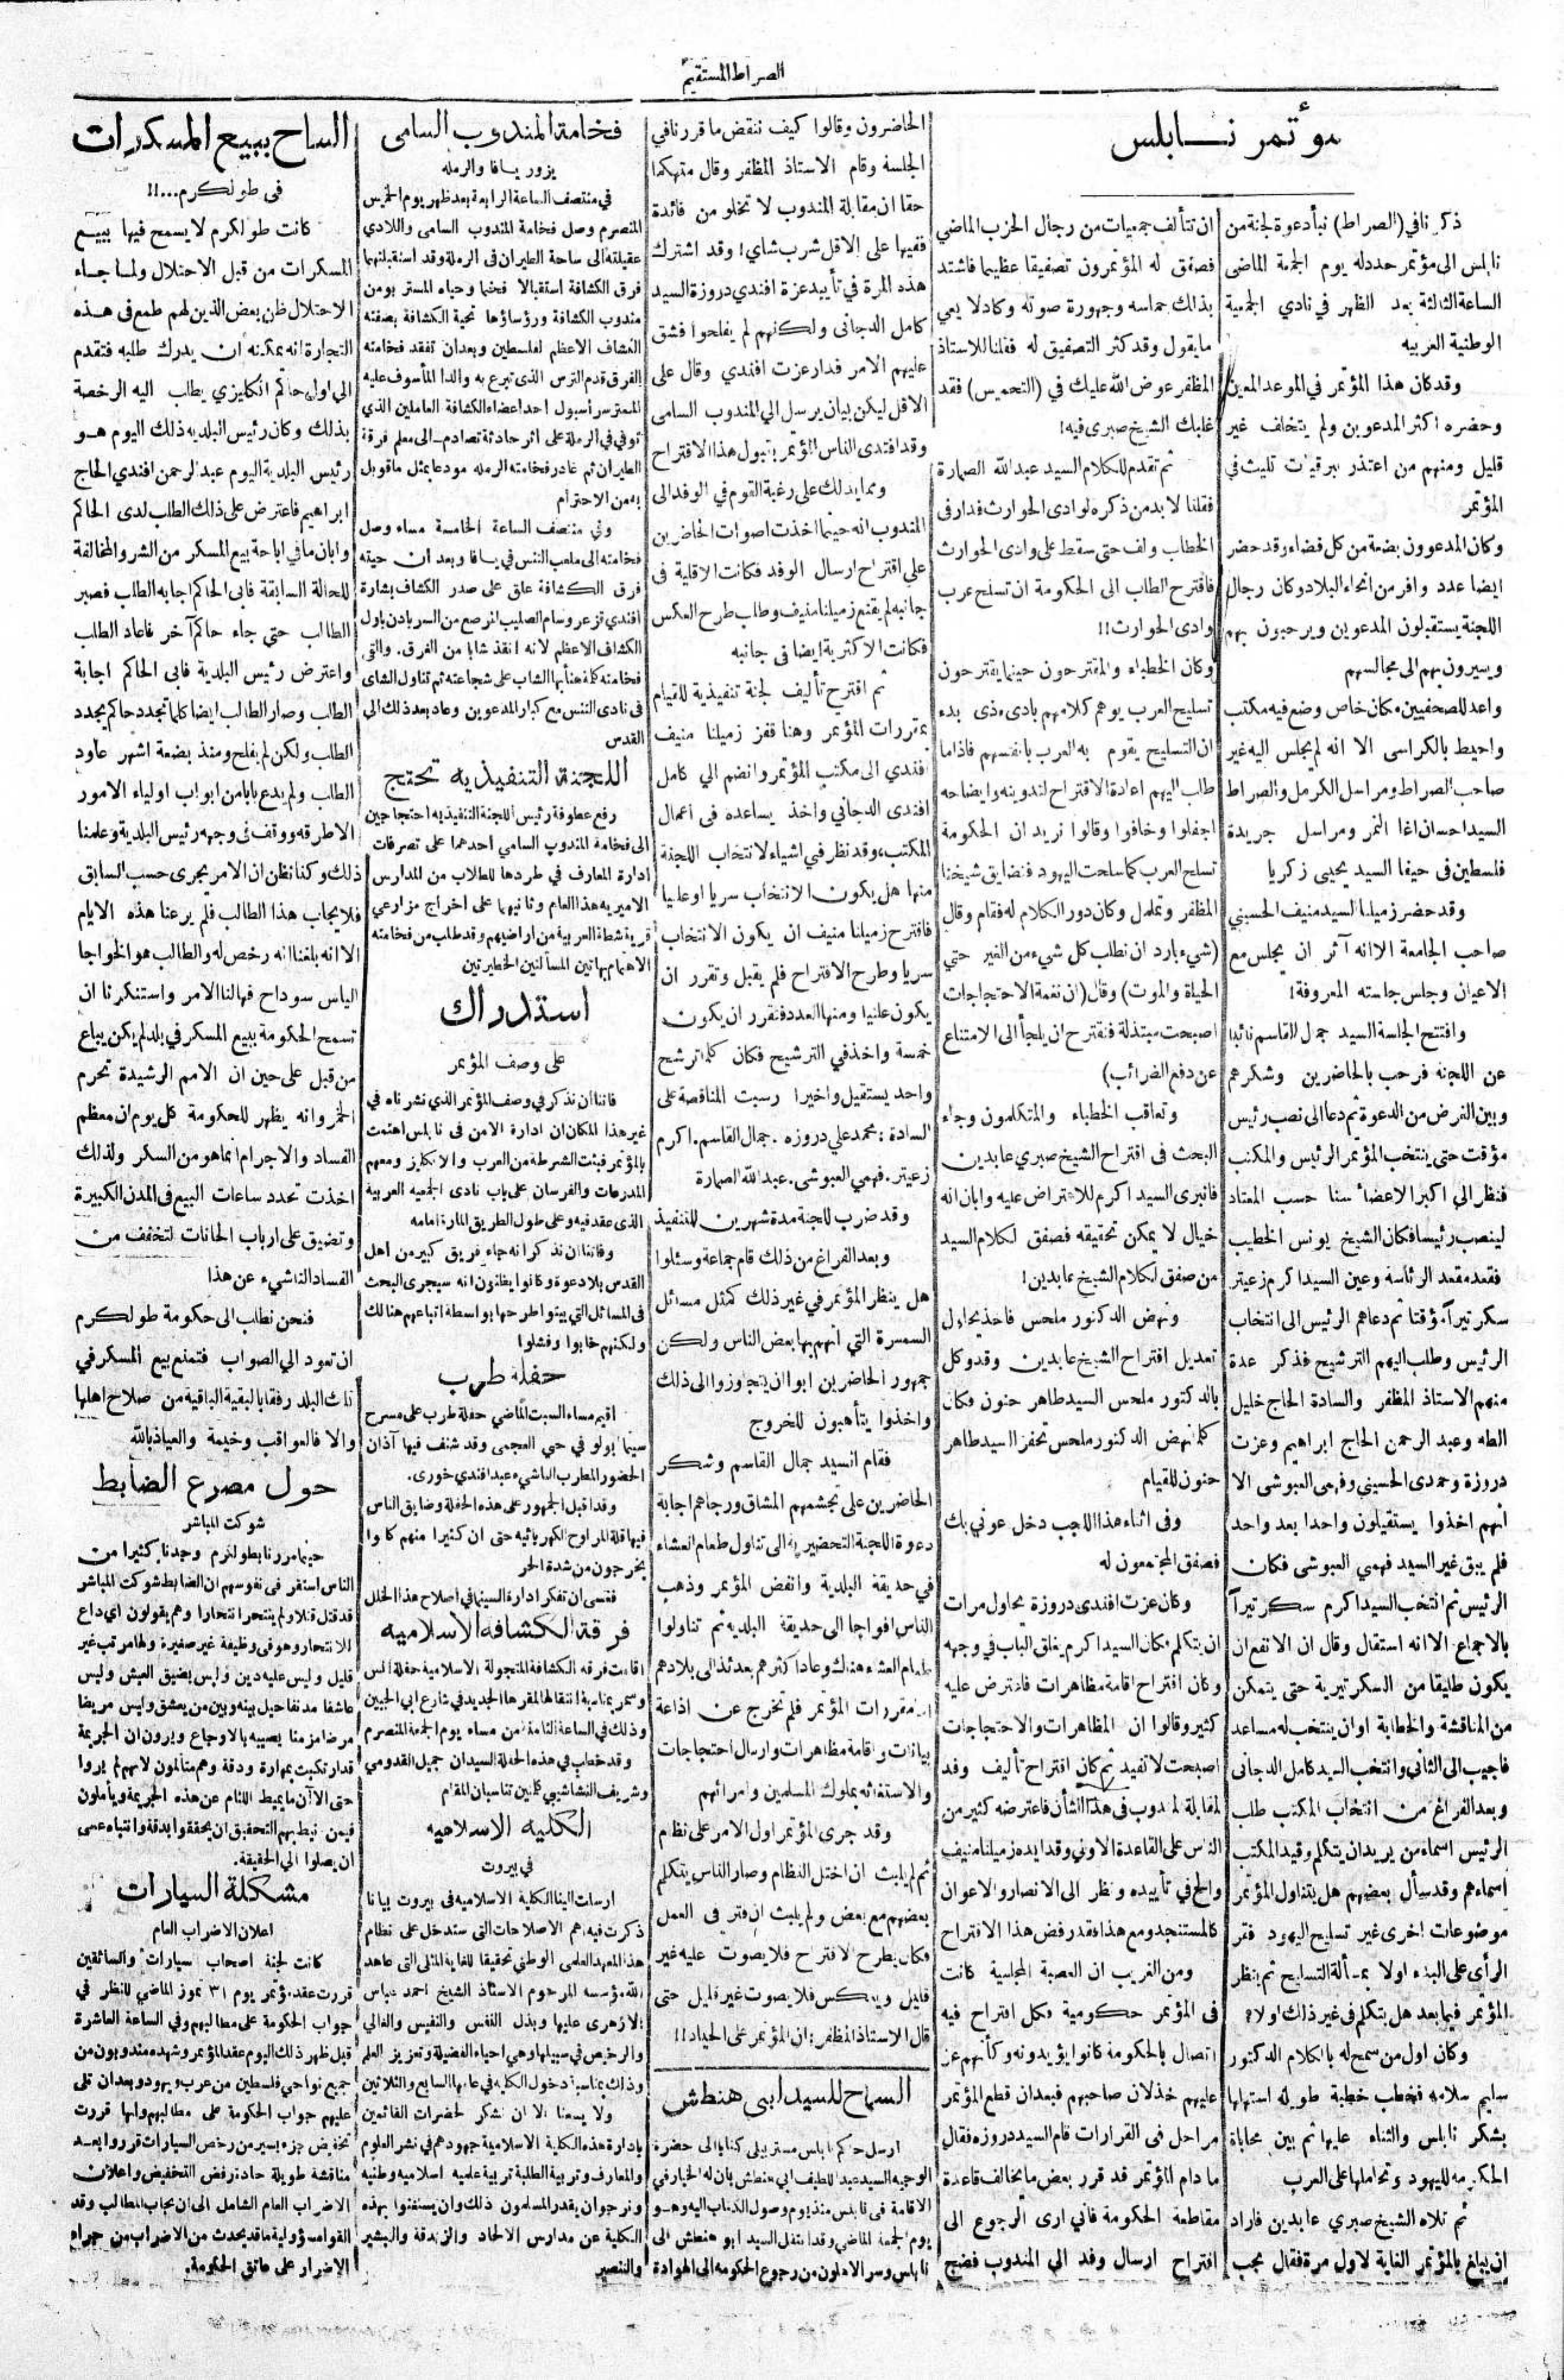 الصراط المستقيم
مؤتمر نــابلس
ذكرنا في (الصراط) نبأ دعوة لجنة من
نابلس الى مؤتمر حدد له يوم الجمعة الماضى
الساعة الثالثة بعد الظهر في نادي الجمعية
الوطنية العربيه
وقد كان هذا المؤتمر في الموعد المعين
وحضره اكثر المدعوين ولم يتخلف غير
قليل ومنهم من اعتذر ببرقيات تليت في
المؤتمر
وكان المدعوون بضعة من كل قضاء وقد حضر
ايضا عدد وافر من انحاء البلاد وكان رجال
اللجنة يستقبلون المدعوين ويرحبون بهم
ويسيرون بهم الى مجالسهم
واعد للصحفيين مكان خاص وضع فيه مكتب
واحيط بالكراسى الا انه لم يجلس اليه غير
صاحب الصراط ومراسل الكرمل والصراط
السيد احسان اغا النمر ومراسل جريدة
فلسطين فى حيفا السيد يحيى زكريا
وقد حضر زميلنا السيد منيف الحسيني
صاحب الجامعة الا انه آثر ان يجلس مع
الاعيان وجلس جلسته المعروفة!
وافتتح الجلسة السيد جمال القاسم نائبا
عن اللجنه فرحب بالحاضرين وشكرهم
وبين الغرض من الدعوة ثم دعا الى نصب رئيس
مؤقت حتى ينتخب المؤتمر الرئيس والمكتب
فنظر الي اكبر الاعضاء سنا حسب المعتاد
لينصب رئيسا فكان الشيخ يونس الخطيب
فقعد مقعد الرئاسة وعين السيد اكرم زعيتر
سكرتيراً مؤقتا ثم دعاهم الرئيس الى انتخاب
الرئيس وطلب اليهم الترشيح فذكر عدة
منهم الاستاذ المظفر والسادة الحاج خليل
الطه وعبد الرحمن الحاج ابراهيم وعزت
دروزة وحمدى الحسيني وفهمى العبوشى الا
انهم اخذوا يستقيلون واحدا بعد واحد
فلم يبق غير السيد فهمي العبوشى فكان
الرئيس ثم انتخب السيد اكرم سكرتيراً
بالاجماع الا انه استقال وقال ان الانفع ان
يكون طليقا من السكرتيرية حتى يتمكن
من المناقشة والخطابة او ان ينتخب له مساعد
فاجيب الى الثاني وانتخب السيد كامل الدجانى
وبعد الفراغ من انتخاب المكتب طلب
الرئيس اسماء من يريد ان يتكلم وقيد المكتب
اسماءهم وقد سأل بعضهم هل يتناول المؤتمر
موضوعات اخرى غير تسليح اليهود فقر
الرأى على البدء اولا بمسألة التسليح ثم ينظر
المؤتمر فيما بعد هل يتكلم فى غير ذلك او لا؟
وكان اول من سمح له بالكلام الدكتور
سليم سلامه فخطب خطبة طويله استهلها
بشكر نابلس والثناء عليها ثم بين محاباة
الحكومه لليهود وتحاملها على العرب
ثم تلاه الشيخ صبري عابدين فاراد
ان يبلغ بالمؤتمر الغاية لاول مرة فقال يجب
ان تتألف جمعيات من رجال الحزب الماضي
فصفق له المؤتمرون تصفيقا عظيما فاشتد
بذلك حماسه وجهورة صوته وكاد لا يعي
ما يقول وقد كثر التصفيق له فقلنا للاستاذ
المظفر عوض الله عليك في (التحميس) فقد
غلبك الشيخ صبرى فيه!
ثم تقدم للكلام السيد عبد الله الصمارة
فقلنا لا بد من ذكره لوادى الحوارث فدار فى
الخطاب ولف حتى سقط على وادى الحوارث
فاقترح الطلب الى الحكومة ان تسلح عرب
وادى الحوارث!!
وكان الخطباء والمقترحون حينما يقترحون
تسليح العرب يوهم كلامهم بادىء ذى بدء
ان التسليح يقوم به العرب بانفسهم فاذا ما
طلب اليهم اعادة الاقتراح لتدوينه وايضاحه
اجفلوا وخافوا وقالوا نريد ان الحكومة
تسلح العرب كما سلحت اليهود فتضايق شيخنا
المظفر وتململ وكان دور الكلام له فقام وقال
(شيء بارد ان نطلب كل شيء من الغير حتي
الحياة والموت) وقال (ان نغمة الاحتجاجات
اصبحت مبتذلة فنقترح ان يلجأ الى الامتناع
عن دفع الضرائب)
وتعاقب الخطباء والمتكلمون وجاء
البحث فى اقتراح الشيخ صبري عابدين
فانبرى السيد اكرم للاعتراض عليه وابان انه
خيال لا يمكن تحقيقه فصفق لكلام السيد
من صفق لكلام الشيخ عابدين!
ونهض الدكتور ملحس فاخذ يحاول
تعديل اقتراح الشيخ عابدين وقد وكل
بالدكتور ملحس السيد طاهر حنون فكان
كلما نهض الدكتور ملحس تحفز السيد طاهر
حنون للقيام
وفى اثناء هذا اللجب دخل عوني بك
فصفق المجتمعون له
وكان عزت افندى دروزة يحاول مرات
ان يتكلم فكان السيد اكرم يغلق الباب في وجهه
وكان اقتراح اقامة مظاهرات فاعترض عليه
كثير وقالوا ان المظاهرات والاحتجاجات
اصبحت لا تفيد ثم كان اقتراح تأليف وفد
لمقابلة المندوب فى هذا الشأن فاعترضه كثير من
الناس على القاعدة الاونى وقد ايده زميلنا منيف
والح في تأييده ونظر الى الانصار والاعوان
كالمستنجد ومع هذا فقد رفض هذا الاقتراح
ومن الغريب ان العصبة المجلسية كانت
فى المؤتمر حكومية فكل اقتراح فيه
اتصال بالحكومة كانوا يؤيدونه وكأنهم عز
عليهم خذلان صاحبهم فبعد ان قطع المؤتمر
مراحل فى القرارات قام السيد دروزه فقال
ما دام المؤتمر قد قرر بعض ما يخالف قاعدة
مقاطعة الحكومة فاني ارى الرجوع الى
اقتراح ارسال وفد الى المندوب فضج
الحاضرون وقالوا كيف ننقض ما قررنا في
الجلسة وقام الاستاذ المظفر وقال متهكما
حقا ان مقابلة المندوب لا تخلو من فائدة
ففيها على الاقل شرب شاي! وقد اشترك
هذه المرة في تأييد عزة افندي دروزة السيد
كامل الدجانى ولكنهم لم يفلحوا فشق
عليهم الامر فدار عزت افندي وقال على
الاقل ليكن بيان يرسل الي المندوب السامى
وقد افتدى الناس المؤتمر بقبول هذا الاقتراح
ومما يدلك على رغبة القوم في الوفد الى
المندوب انه حينما اخذت اصوات الحاضرين
على اقتراح ارسال الوفد فكانت الاقلية فى
جانبه لم يقنع زميلنا منيف وطلب طرح العكس
فكانت الاكثرية ايضا فى جانبه
ثم اقترح تأليف لجنة تنفيذية للقيام
بمقررات المؤتمر وهنا قفز زميلنا منيف
افندي الى مكتب المؤتمر وانضم الي كامل
افندى الدجاني واخذ يساعده فى اعمال
المكتب، وقد نظر في اشياء لانتخاب اللجنة
منها هل يكون الانتخاب سريا او علنيا
فاقترح زميلنا منيف ان يكون الانتخاب
سريا وطرح الاقتراح فلم يقبل وتقرر ان
يكون علنيا ومنها العدد فتقرر ان يكون
خمسة واخذ في الترشيح فكان كلما ترشح
واحد يستقيل واخيرا رسبت المناقصة على
السادة: محمد علي دروزه. جمال القاسم. اكرم
زعيتر. فهمي العبوشى. عبد الله الصمارة
وقد ضرب للجنة مدة شهرين للتنفيذ
وبعد الفراغ من ذلك قام جماعة وسئلوا
هل ينظر المؤتمر في غير ذلك كمثل مسائل
السمسرة التي اتهم بها بعض الناس ولكن
جمهور الحاضرين ابوا ان يتجاوزوا الى ذلك
واخذوا يتأهبون للخروج
فقام السيد جمال القاسم وشكر
الحاضرين على تجشمهم المشاق ورجاهم اجابة
دعوة اللجنة التحضيرية الى تناول طعام العشاء
في حديقة البلدية وانفض المؤتمر وذهب
الناس افواجا الى حديقة البلديه ثم تناولوا
طعام العشاء هناك وعاد اكثرهم بعد ئذ الى بلادهم
اما مقررات المؤتمر فلم تخرج عن اذاعة
بيانات واقامة مظاهرات وارسال احتجاجات
والاستغاثه بملوك المسلمين وامرائهم
وقد جرى المؤتمر اول الامر على نظام
ثم لم يلبث ان اختل النظام وصار الناس يتكلم
بعضهم مع بعض ولم يلبث ان فتر فى العمل
فكان يطرح الاقتراح فلا يصوت عليه غير
قليل ويعكس فلا يصوت غير قليل حتى
قال الاستاذ المظفر: ان المؤتمر على الحياد!!
السماح للسيد ابى هنطش
ارسل حاكم نابلس مستر بيلى كتابا الى حضرة
الوجيه السيد عبد اللطيف ابي هنطش بان له الخيار في
الاقامة فى نابلس منذ يوم وصول الكتاب اليه وهــو
يوم الجمعة الماضى وقد انتقل السيد ابو هنطش الى
نابلس وسر الاهلون من رجوع الحكومه الى الهوادة
فخامة المندوب السامى
يزور يافا والرمله
في منتصف الساعة الرابعة بعد ظهر يوم الخميس
المنصرم وصل فخامة المندوب السامى واللادي
عقيلته الى ساحة الطيران فى الرملة وقد استقبلتهما
فرق الكشافة استقبالا فخما وحياه المستر بومن
مندوب الكشافة ورؤساؤها تحية الكشافة بصفته
الكشاف الاعظم لفلسطين وبعد ان تفقد فخامته
الفرق قدم الترس الذى تبرع به والدا المأسوف عليه
المستر سر اسبول احد اعضاء الكشافة العاملين الذي
توفي في الرملة على اثر حادثة تصادم ــ الى معلم فرقة
الطيران ثم غادر فخامته الرمله مودعا بمثل ما قوبل
به من الاحترام
وفي منتصف الساعة الخامسة مساء وصل
فخامته الى ملعب التنس في يافا وبعد ان حيته
فرق الكشافة علق على صدر الكشاف بشارة
افندي قزعر وسام الصليب المرصع من السر بادن باول
الكشاف الاعظم لانه انقذ شابا من الغرق. والقى
فخامته كلمة هنأ بها الشاب على شجاعته ثم تناول الشاى
فى نادى التنس مع كبار المدعوين وعاد بعد ذلك الي
القدس
اللجنة التنفيذيه تحتج
رفع عطوفة رئيس اللجنة التنفيذيه احتجاجين
الى فخامة المندوب السامي احدهما على تصرفات
ادارة المعارف في طردها للطلاب من المدارس
الاميريه هذا العام وثانيهما على اخراج مزارعي
قرية شطة العربية من اراضيهم وقد طلب من فخامته
الاهتمام بهاتين المسألتين الخطيرتين
استدراك
على وصف المؤتمر
فاتنا ان نذكر في وصف المؤتمر الذي نشرناه في
غير هذا المكان ان ادارة الامن فى نابلس اهتمت
بالمؤتمر فبثت الشرطة من العرب والانكليز ومعهم
المدرعات والفرسان على باب نادى الجمعيه العربية
الذى عقد فيه وعلى طول الطريق المارة امامه
وفاتنا ان نذكر انه جاء فريق كبير من اهل
القدس بلا دعوة وكانوا يظنون انه سيجرى البحث
فى المسائل التي بيتوا طرحها بواسطة اتباعهم هنالك
ولكنهم خابوا وفشلوا
حفلة طرب
اقيم مساء السبت الماضي حفلة طرب على مسرح
سينما ابولو في حي العجمى وقد شنف فيها آذان
الحضور المطرب الناشىء عبد افندي خورى.
وقد اقبل الجمهور على هذه الحفلة وضايق الناس
فيها قلة المراوح الكهربائيه حتى ان كثيرا منهم كانوا
يخرجون من شدة الحر
فعسى ان تفكر ادارة السينما في اصلاح هذا الخلل
فرقة الكشافه الاسلاميه
اقامت فرقة الكشافة المتجولة الاسلامية حفلة انس
وسمر بمناسبة انتقالها لمقرها الجديد في شارع ابي الجبين
وذلك في الساعة الثامنة من مساء يوم الجمعة المنصرم
وقد خطب في هذه الحفلة السيدان جميل القدومي
وشريف النشاشيبي كلمتين تناسبان المقام
الكليه الاسلاميه
في بيروت
ارسلت الينا الكلية الاسلاميه فى بيروت بيانا
ذكرت فيه اهم الاصلاحات التى ستدخل على نظام
هذا المعهد العلمى الوطني تحقيقا للغايه المثلى التى عاهد
الله مؤسسه المرحوم الاستاذ الشيخ احمد عباس
الازهرى عليها وبذل النفس والنفيس والغالي
والرخيص في سبيلها وهي احياء الفضيلة وتعزيز العلم
وذلك بمناسبة دخول الكليه في عامها السابع والثلاثين
ولا يسعنا الا ان نشكر لحضرات القائمين
بادارة هذه الكلية الاسلامية جهودهم في نشر العلوم
والمعارف وتربية الطلبة تربية علميه اسلاميه وطنيه
ونرجو ان يقدر المسلمون ذلك وان يستغنوا بهذه
الكلية عن مدارس الالحاد والزندقة والتبشير
والتنصير
الساح ببيع المسكرات
فى طولكرم...!!
كانت طولكرم لا يسمح فيها ببيــع
المسكرات من قبل الاحتلال ولما جــاء
الاحتلال ظن بعض الذين لهم طمع فى هــذه
التجارة انه يمكنه ان يدرك طلبه فتقدم
الي اول حاكم انكليزي يطلب اليه الرخصة
بذلك وكان رئيس البلديه ذلك اليوم هــو
رئيس البلدية اليوم عبد الرحمن افندي الحاج
ابراهيم فاعترض على ذلك الطلب لدى الحاكم
وابان ما في اباحة بيع المسكر من الشر والمخالفة
للحالة السابقة فابى الحاكم اجابه الطلب فصبر
الطالب حتي جاء حاكم آخر فاعاد الطلب
واعترض رئيس البلدية فابى الحاكم اجابة
الطلب وصار الطالب ايضا كلما تجدد حاكم يجدد
الطلب ولكن لم يفلح ومنذ بضعة اشهر عاود
الطلب ولم يدع بابا من ابواب اولياء الامور
الا طرقه ووقف فى وجهه رئيس البلدية وعلمنا
ذلك وكنا نظن ان الامر يجرى حسب السابق
فلا يجاب هذا الطالب فلم يرعنا هذه الايام
الا انه بلغنا انه رخص له والطالب هو الخواجا
الياس سوداح فهالنا الامر واستنكرنا ان
تسمح الحكومة ببيع المسكر في بلد لم يكن يباع
من قبل على حين ان الامم الرشيدة تحرم
الخمر وانه يظهر للحكومة كل يوم ان معظم
الفساد والاجرام انما هو من السكر ولذلك
اخذت تحدد ساعات البيع فى المدن الكبيرة
وتضيق على ارباب الحانات لتخفف من
الفساد الناشيء عن هذا
فنحن نطلب الى حكومة طولكرم
ان تعود الي الصواب فتمنع بيع المسكر في
ذلك البلد رفقا بالبقية الباقية من صلاح اهلها
والا فالعواقب وخيمة والعياذ بالله
حول مصرع الضابط
شوكت المباشر
حينما مررنا بطولكرم وجدنا كثيرا من
الناس استقر فى نفوسهم ان الضابط شوكت المباشر
قد قتل قتلا ولم ينتحر انتحارا وهم يقولون اي داع
للانتحار وهو فى وظيفة غير صغيرة ولها مرتب غير
قليل وليس عليه دين وليس بضيق العيش وليس
عاشقا مدنفا حيل بينه وبين من يعشق وليس مريضا
مرضا مزمنا يصيبه بالاوجاع ويرون ان الجريمة
قد ارتكبت بمهارة ودقة وهم متألمون لانهم لم يروا
حتى الآن ما يميط اللثام عن هذه الجريمة ويأملون
فيمن نيط بهم التحقيق ان يحققوا بدقة وانتباه عسى
ان يصلوا الي الحقيقة.
مشكلة السيارات
اعلان الاضراب العام
كانت لجنة اصحاب سيارات والسائقين
قررت عقد مؤتمر يوم ٣١ تموز الماضي للنظر في
جواب الحكومة على مطالبهم وفي الساعة العاشرة
قبل ظهر ذلك اليوم عقد المؤتمر وشهده مندوبون من
جميع نواحي فلسطين من عرب ويهود وبعد ان تلى
عليهم جواب الحكومة على مطالبهم وانها قررت
تخفيض جزء يسير من رخص السيارات قرروا بعــد
مناقشة طويلة حادة رفض التخفيض واعلان
الاضراب العام الشامل الى ان يجاب المطالب وقد
القوا مسؤولية ما قد يحدث من الاضراب من جراء
الاضرار على عاتق الحكومة.